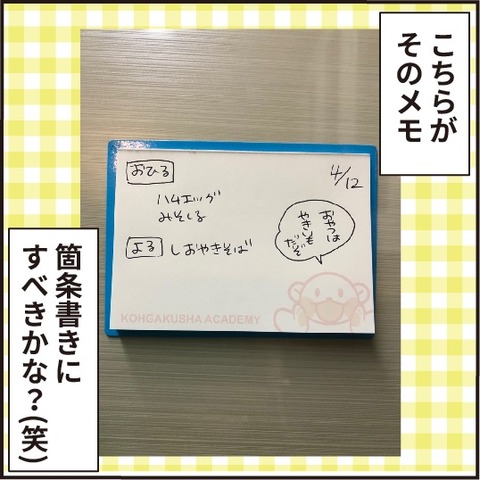 こちらが
そのメモ
おひる
4/12
ハムエッグ
みそしる
おやつは
やきいも
だぞ
よる しおやきそば
KOHGAKUSHA ACADEMY
箇条書きに
すべきかな?(笑)